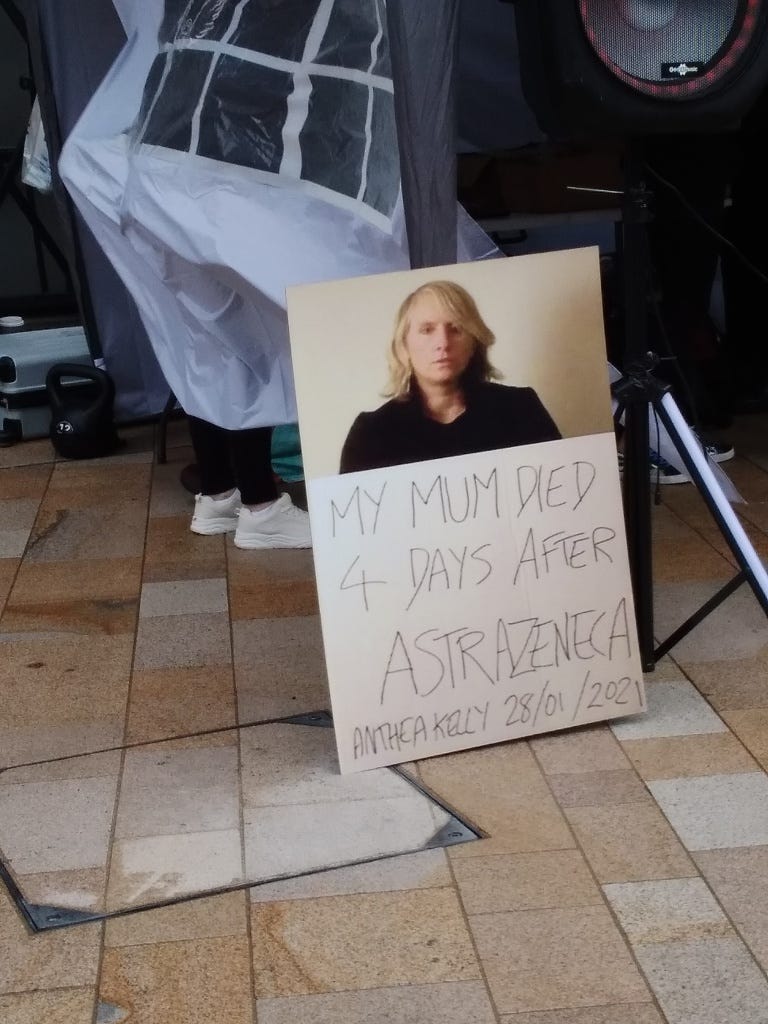 MY MUM DIED
4 DAYS AFTER
ASTRAZENECA
ANTHEA KELLY 28/01/2021